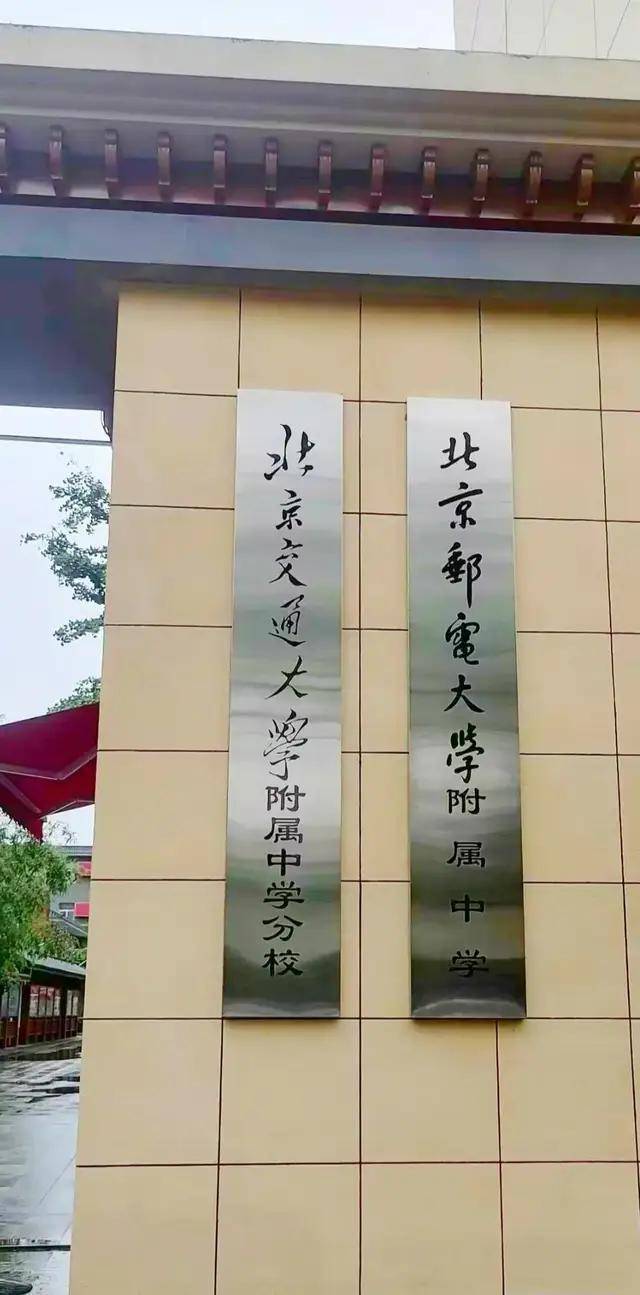 北京交通大學附属中学分校
北京郵電大学附属中学